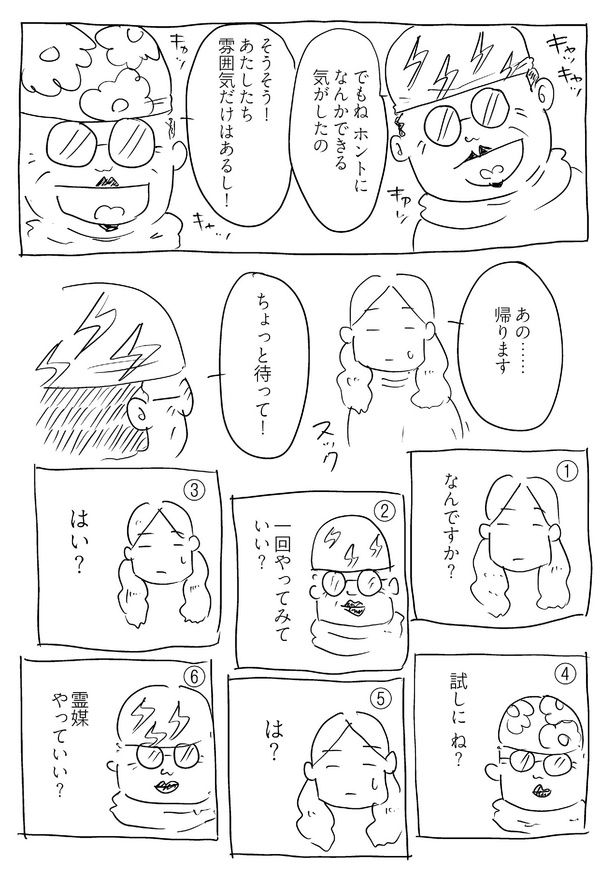 キャッ
キャッ
でもね ホントに
なんかできる
気がしたの
キャッ
そうそう！
あたしたち
雰囲気だけはあるし！
キャッ
キャッ
あの……
帰ります
スック
ちょっと待って！
①
なんですか？
②
一回やってみて
いい？
③
はい？
④
試しに ね？
⑤
は？
⑥
霊媒
やっていい？